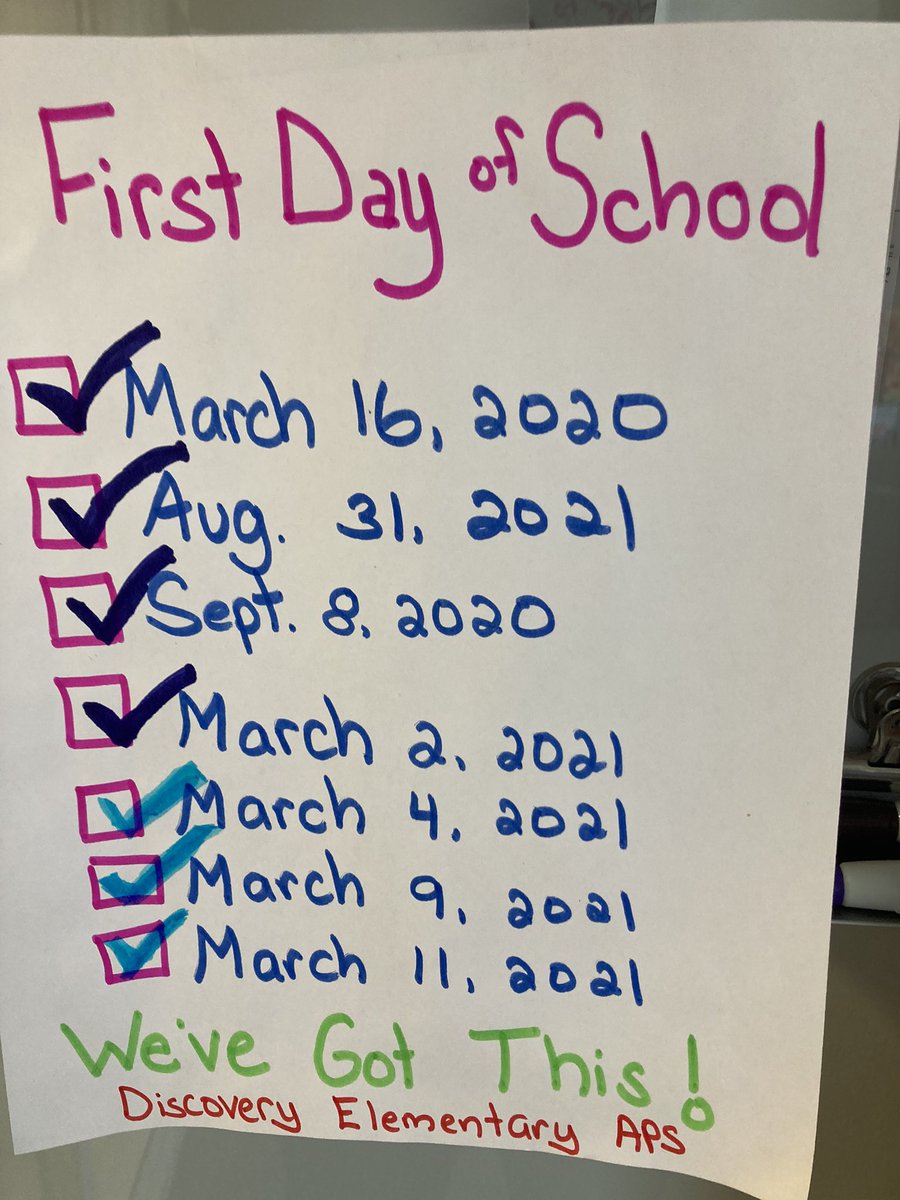 First Day of School
March 16, 2020
Aug. 31, 2021
Sept. 8, 2020
March 2, 2021
March 4, 2021
March 9, 2021
March 11, 2021
We've Got This!
Discovery Elementary APS